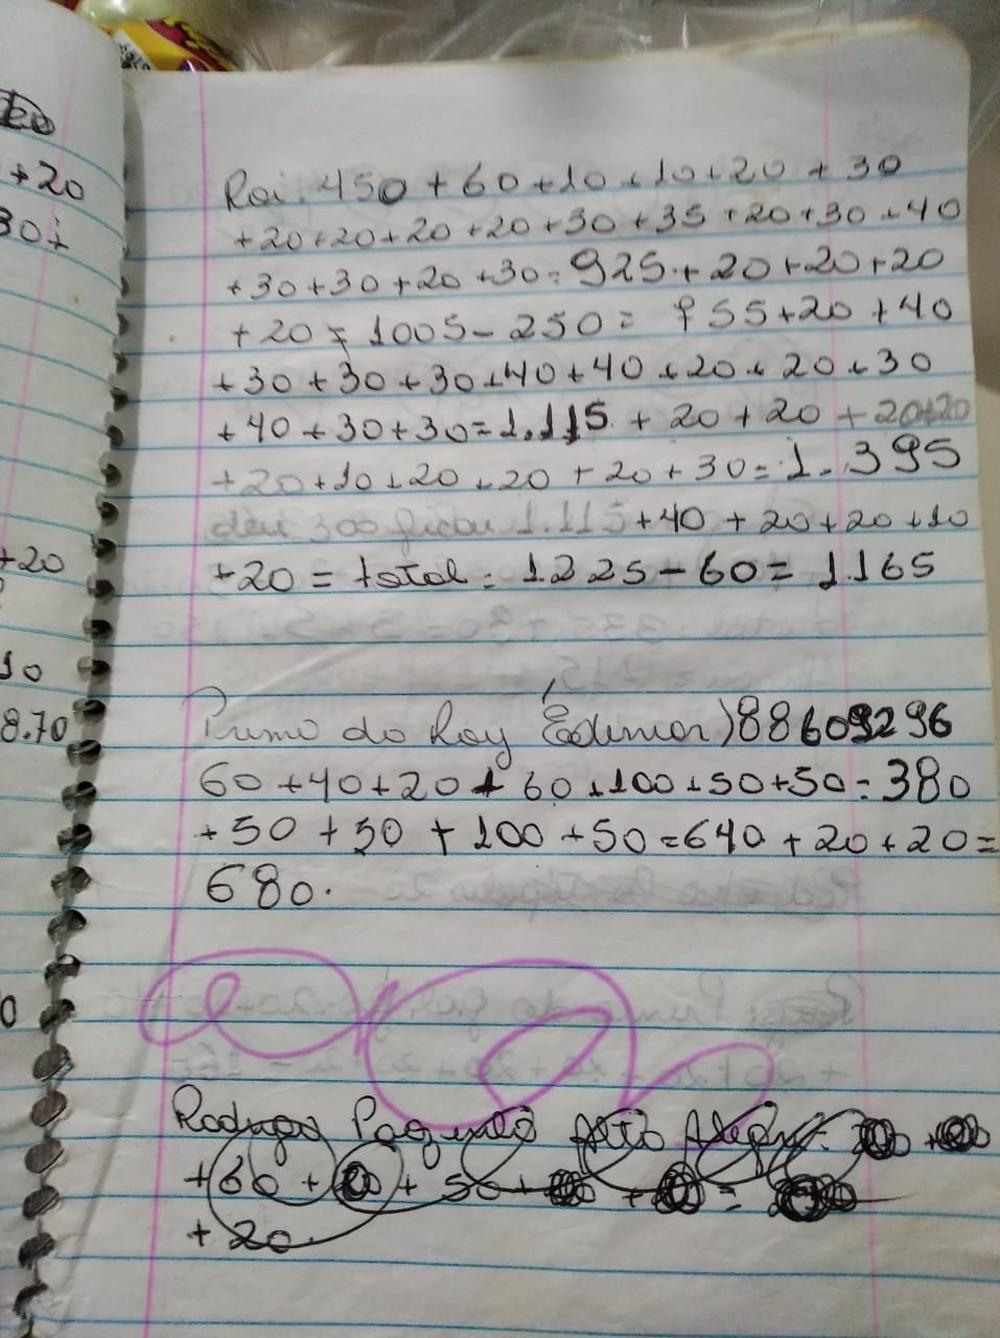 +20
30+
+20
10
8.70
0
Roi. 450 + 60 +10 +10 +20 + 30
+20 +20 +20 +20 +30 +35 +20 +30 +40
+30 +30 +20 +30 = 925 + 20 +20 +20
+20 = 1005 - 250 = 755 +20 +40
+30 +30 +30 +40 +40 +20 + 20 +30
+40 +30 +30 = 1.115 + 20 + 20 + 20+20
+20 +10 +20 +20 +20 +30 = 1.395
deu 300 ficou 1.115 +40 +20 +20 +10
+20 = total = 1225 - 60 = 1.165
Primo do Roy (Edimar) 88609296
60 +40 +20 + 60 +100 +50 +50 = 380
+50 +50 +100 +50 = 640 +20 +20 =
680.
Rodrigo
+60 + + 50 + + =
+ 20.